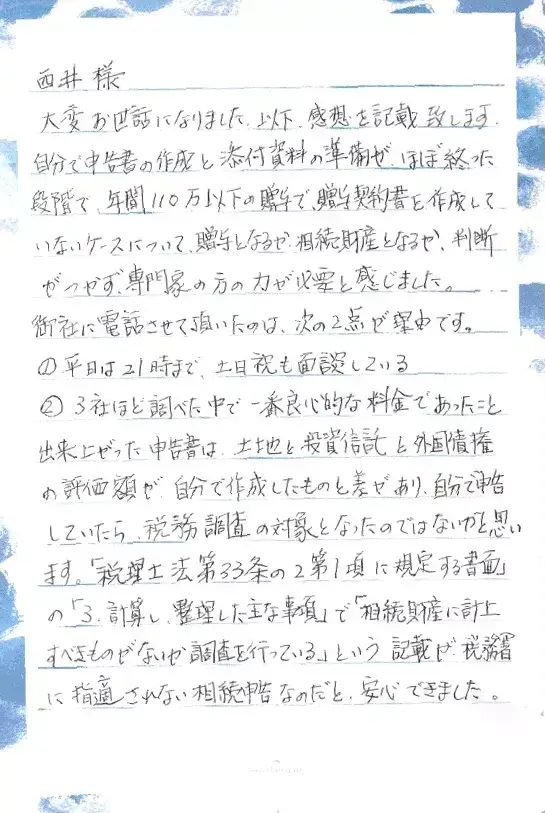 西井 様
大変お世話になりました。以下、感想を記載致します。
自分で申告書の作成と添付資料の準備が、ほぼ終った
段階で、年間110万以下の贈与で、贈与契約書を作成して
いないケースについて、贈与となるか、相続財産となるか、判断
がつかず、専門家の方の力が必要と感じました。
御社に電話させて頂いたのは、次の2点が理由です。
①平日は21時まで、土日祝も面談している
②3社ほど調べた中で一番良心的な料金であったこと
出来上がった申告書は、土地と投資信託と外国債権
の評価額が、自分で作成したものと差があり、自分で申告
していたら、税務調査の対象となったのではないかと思い
ます。「税理士法第33条の2第1項に規定する書面」
の「3.計算し、整理した主な事項」で「相続財産に計上
すべきものがないか調査を行っている」という記載が、税務署
に指適されない相続申告なのだと、安心できました。